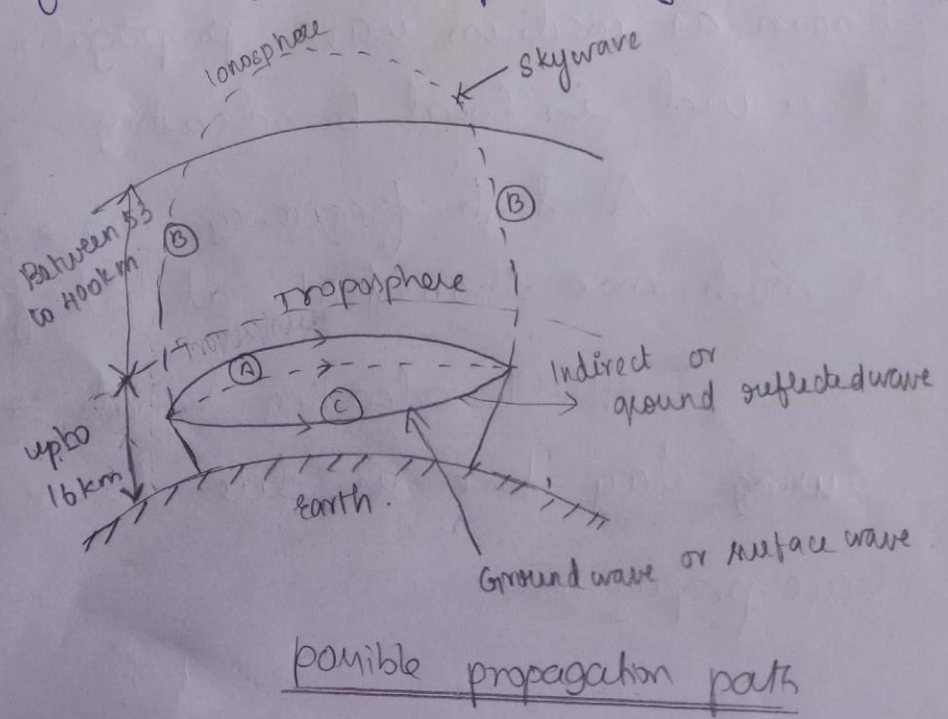 Ionosphere
skywave
B
B
Between 53
to 400km
Troposphere
A
C
Indirect or
ground reflected wave
upto
16km
Earth.
Ground wave or surface wave
possible propagation path